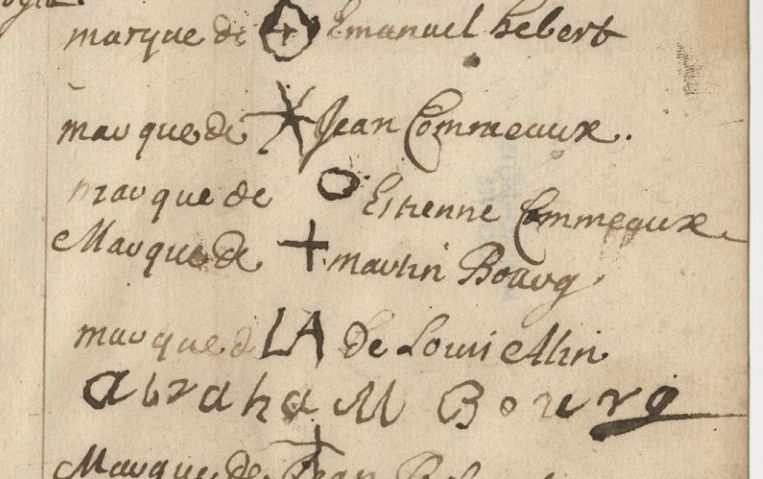 marque de Emanuel hebert
marque de Jean Commeaux.
marque de Estienne Commeaux
Marque de + martin Bourg
marque de LA De Louis Allin
abrahaM Bourg
Marque de Jean